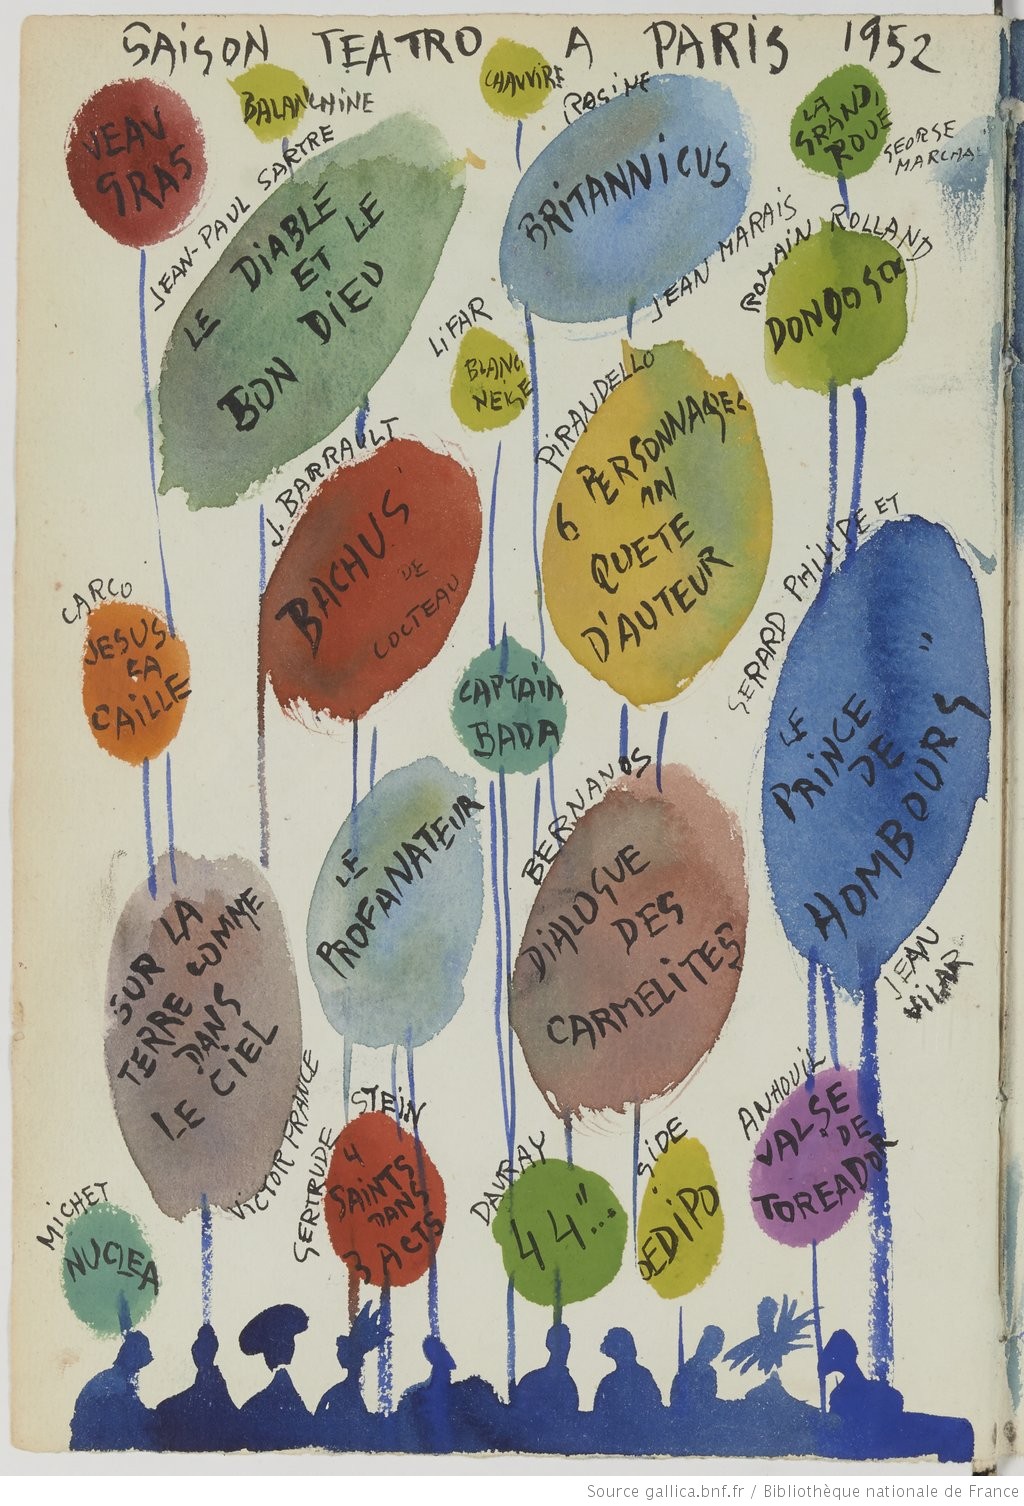 SAISON TEATRO A PARIS 1952
JEAN
GRAS
BALANCHINE
CHAUVIRÉ
LA
GRANDE
ROUE
GEORGE
MARCHAL
JEAN-PAUL SARTRE
LE DIABLE
ET LE
BON DIEU
RASINE
BRITANNICUS
JEAN MARAIS
ROMAIN ROLLAND
LIFAR
BLANC
NEIGE
PIRANDELLO
6 PERSONNAGES
AN
QUETE
D'AUTEUR
J. BARRAULT
BACHUS
DE
COCTEAU
GERARD PHILIPE ET
LE
PRINCE
DE
HOMBOURG
JEAN
VILAR
CARCO
JESUS
LA
CAILLE
CAPTAIN
BADA
LE
PROFANATEUR
BERNANOS
DIALOGUE
DES
CARMELITES
SUR LA
TERRE COMME
DANS
LE CIEL
VICTOR FRANCE
GERTRUDE STEIN
4
SAINTS
DANS
3 ACTS
DAVRAY
44"...
GIDE
OEDIPO
ANHOUIL
VALSE
DE
TOREADOR
MICHET
NUCLEA
Source gallica.bnf.fr / Bibliothèque nationale de France